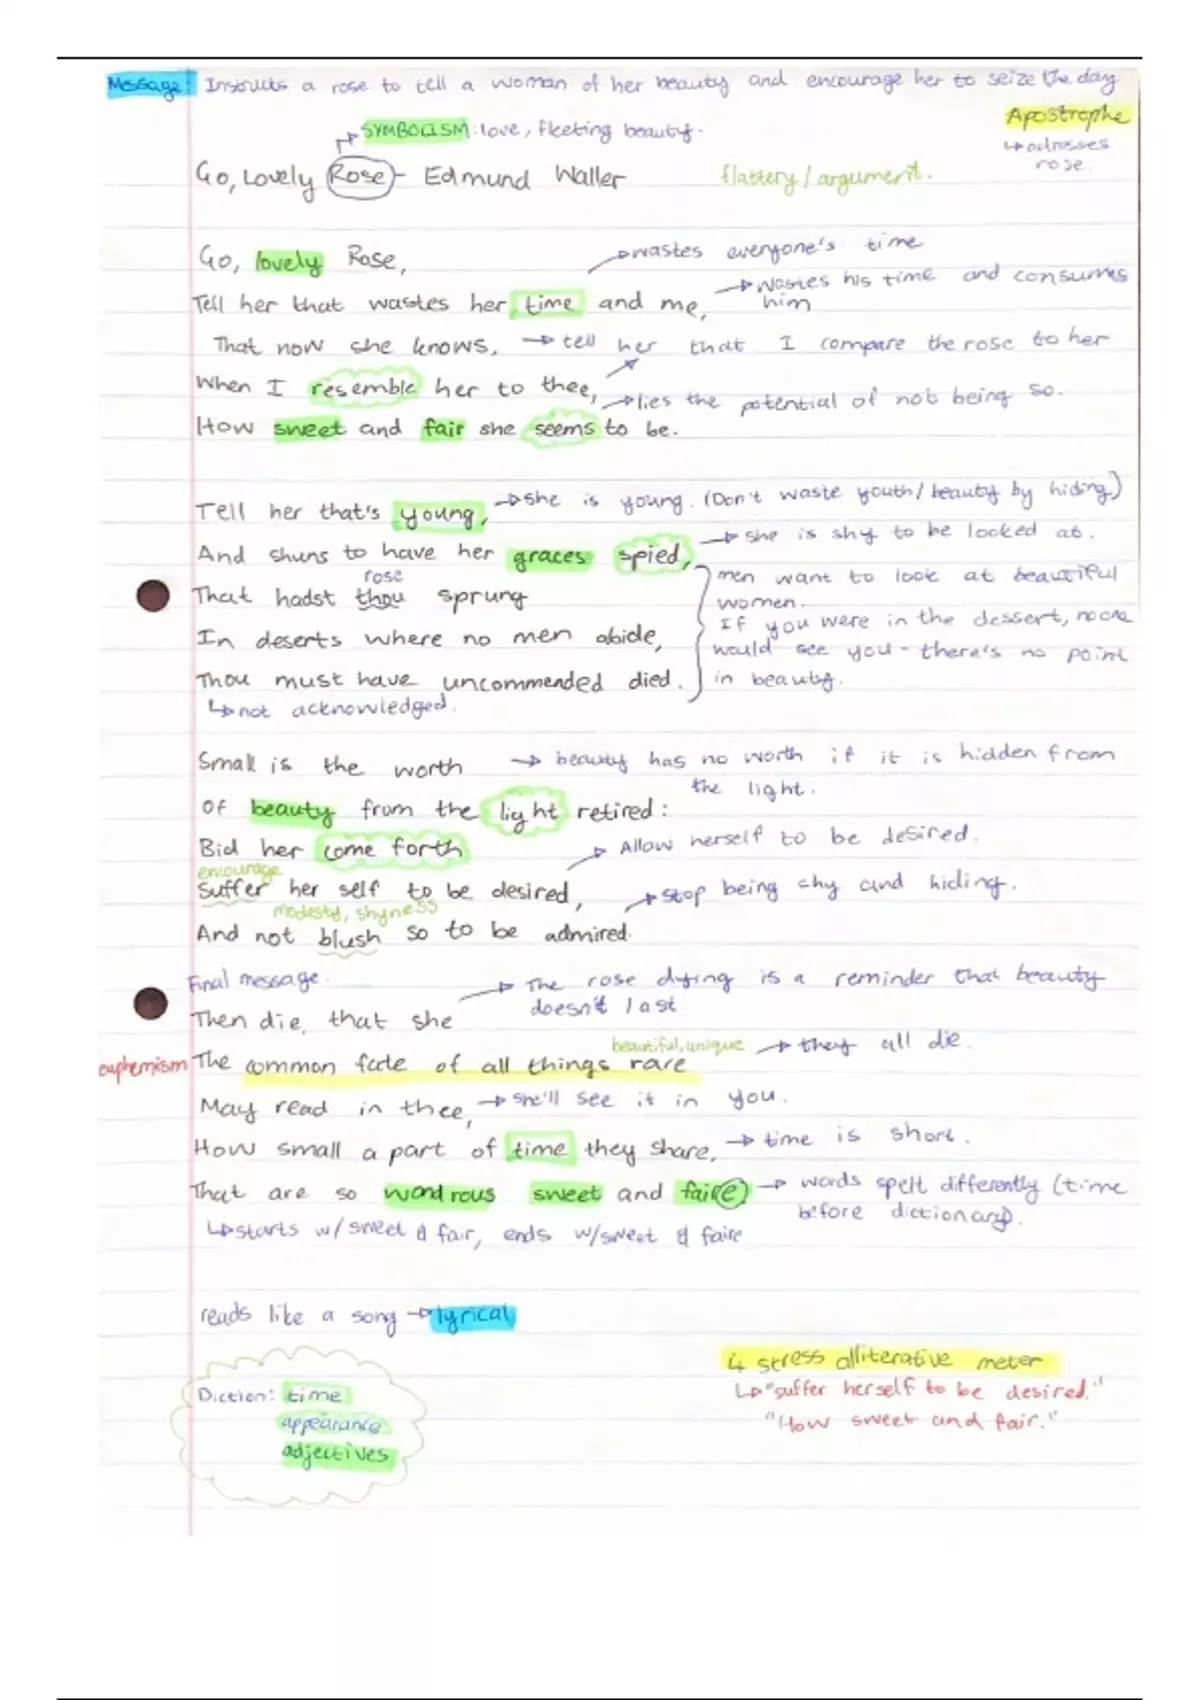 Message: Instructs a rose to tell a woman of her beauty and encourage her to seize the day
Apostrophe
↳ adresses rose.
SYMBOLISM: love, fleeting beauty.
Go, Lovely Rose - Edmund Waller
flattery / argument.
Go, lovely Rose,
→ wastes everyone's time
Tell her that wastes her time and me,
→ wastes his time and consumes him
That now she knows, → tell her that I compare the rose to her
When I resemble her to thee,
→ lies the potential of not being so.
How sweet and fair she seems to be.
Tell her that's young, → she is young. (Don't waste youth / beauty by hiding)
And shuns to have her graces spied, → she is shy to be looked at.
rose
That hadst thou sprung
In deserts where no men abide,
Thou must have uncommended died.
men want to look at beautiful
women.
If you were in the dessert, no one
would see you - there's no point
in beauty.
↳ not acknowledged.
Small is the worth → beauty has no worth if it is hidden from
the light.
Of beauty from the light retired:
Bid her come forth → Allow herself to be desired.
encourage
Suffer her self to be desired, → stop being shy and hiding.
modesty, shyness
And not blush so to be admired.
Final message.
→ The rose dying is a reminder that beauty
doesn't last
Then die, that she
beautiful, unique → they all die.
euphemism The common fate of all things rare
May read in thee, → she'll see it in you.
How small a part of time they share, → time is short.
That are so wondrous sweet and faire) → words spelt differently (time
before dictionary).
↳ starts w/ sweet & fair, ends w/sweet & faire
reads like a song → lyrical
4 stress alliterative meter
↳ "suffer herself to be desired."
"How sweet and fair."
Diction: time
appearance
adjectives